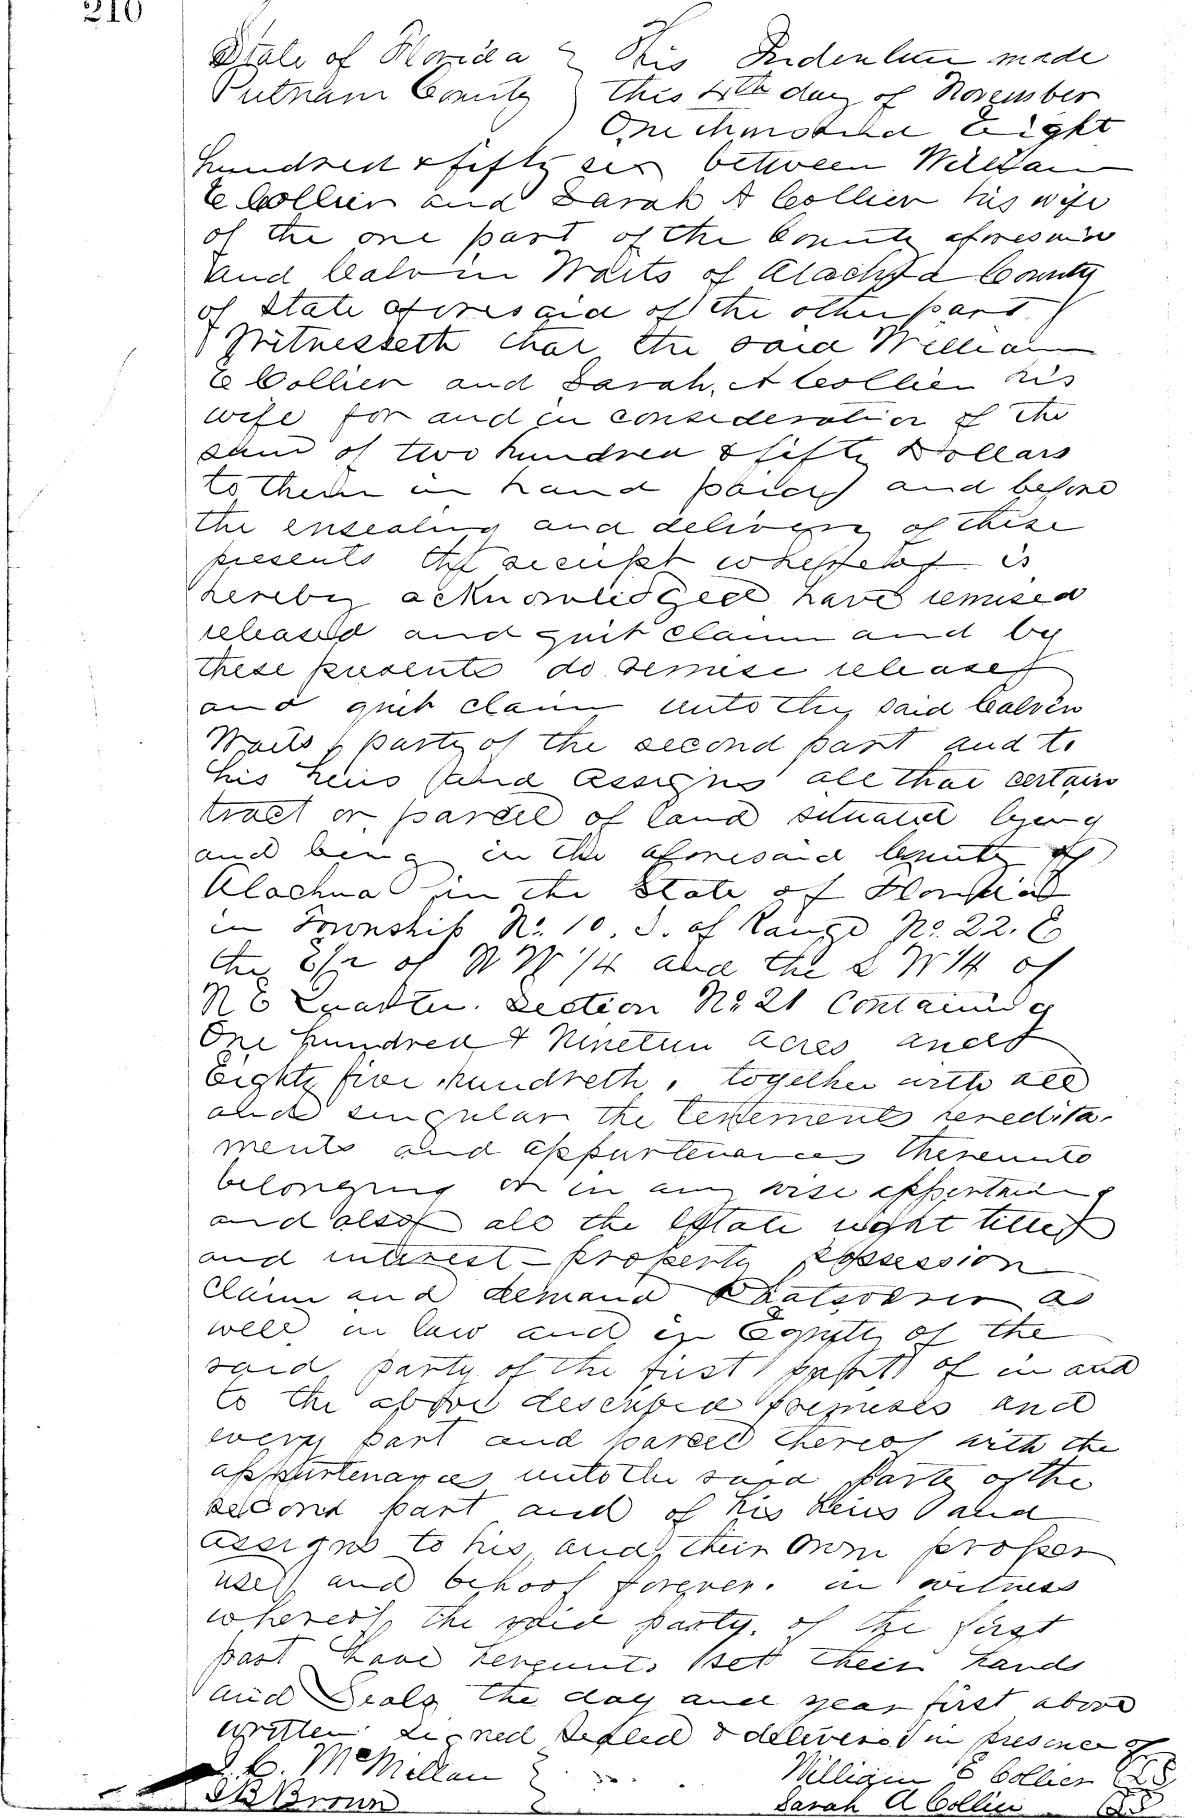 210
State of Florida } This Indenture made
Putnam County } this 4th day of November
One thousand Eight
hundred & fifty six between William
E Collier and Sarah A Collier his wife
of the one part of the County aforesaid
and Calvin Waits of Alachua County
of State aforesaid of the other part
Witnesseth that the said William
E Collier and Sarah, A Collier his
wife for and in consideration of the
sum of two hundred & fifty Dollars
to them in hand paid and before
the ensealing and delivery of these
presents the receipt whereof is
hereby acknowledged have remised
released and quit claim and by
these presents do remise release
and quit claim unto the said Calvin
Waits, party of the second part and to
his heirs and assigns all that certain
tract or parcel of land situated lying
and being in the aforesaid County of
Alachua in the State of Florida
in Township No. 10. S. of Range No. 22. E
the E/2 of N W 1/4 and the S W 1/4 of
N E Quarter. Section No 21 Containing
One hundred & Nineteen acres and
Eighty five hundreth, together with all
and singular the tenements heredita-
ments and appurtenances thereunto
belonging or in any wise appertaining
and also all the Estate right title
and interest - property possession
Claim and demand whatsoever as
well in law and in Equity of the
said party of the first part of in and
to the above described premises and
every part and parcel thereof with the
appurtenances unto the said party of the
second part and of his heirs and
assigns to his, and, their own proper
use, and behoof forever. in witness
whereof, the said party. of the first
part have hereunto set their hands
and Seals the day and year first above
written. Signed Sealed & delivered in presence of
C. McMillan } William E Collier LS
B Brown } Sarah A Collier LS